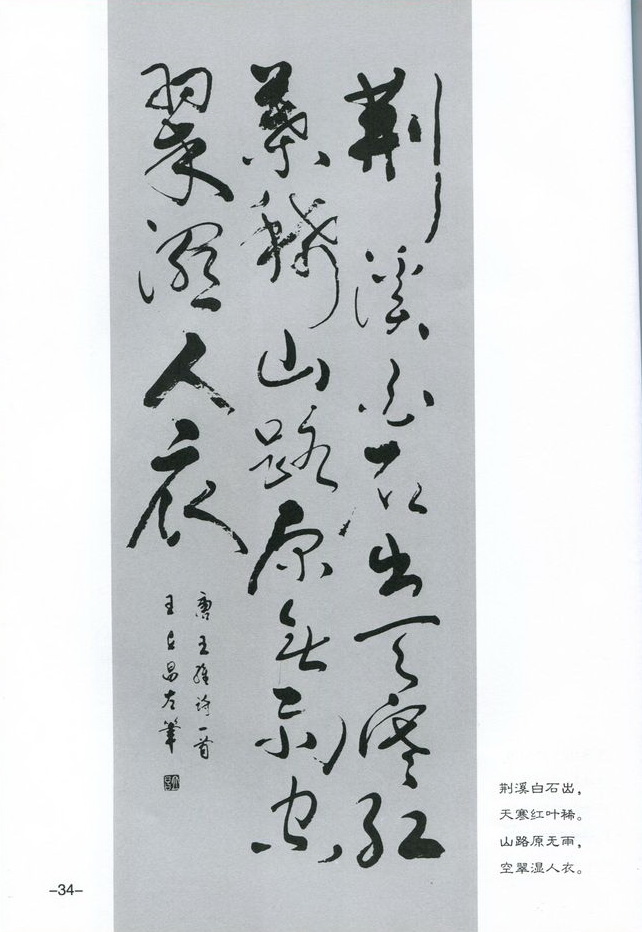 荆溪白石出天寒红
葉稀山路原无雨空
翠濕人衣
唐王維詩一首
王 昌左筆
荆溪白石出，
天寒红叶稀。
山路原无雨，
空翠湿人衣。
-34-